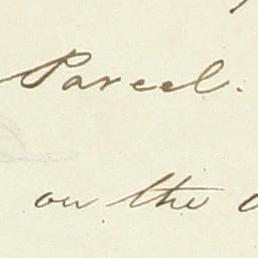 Parcel.
on the